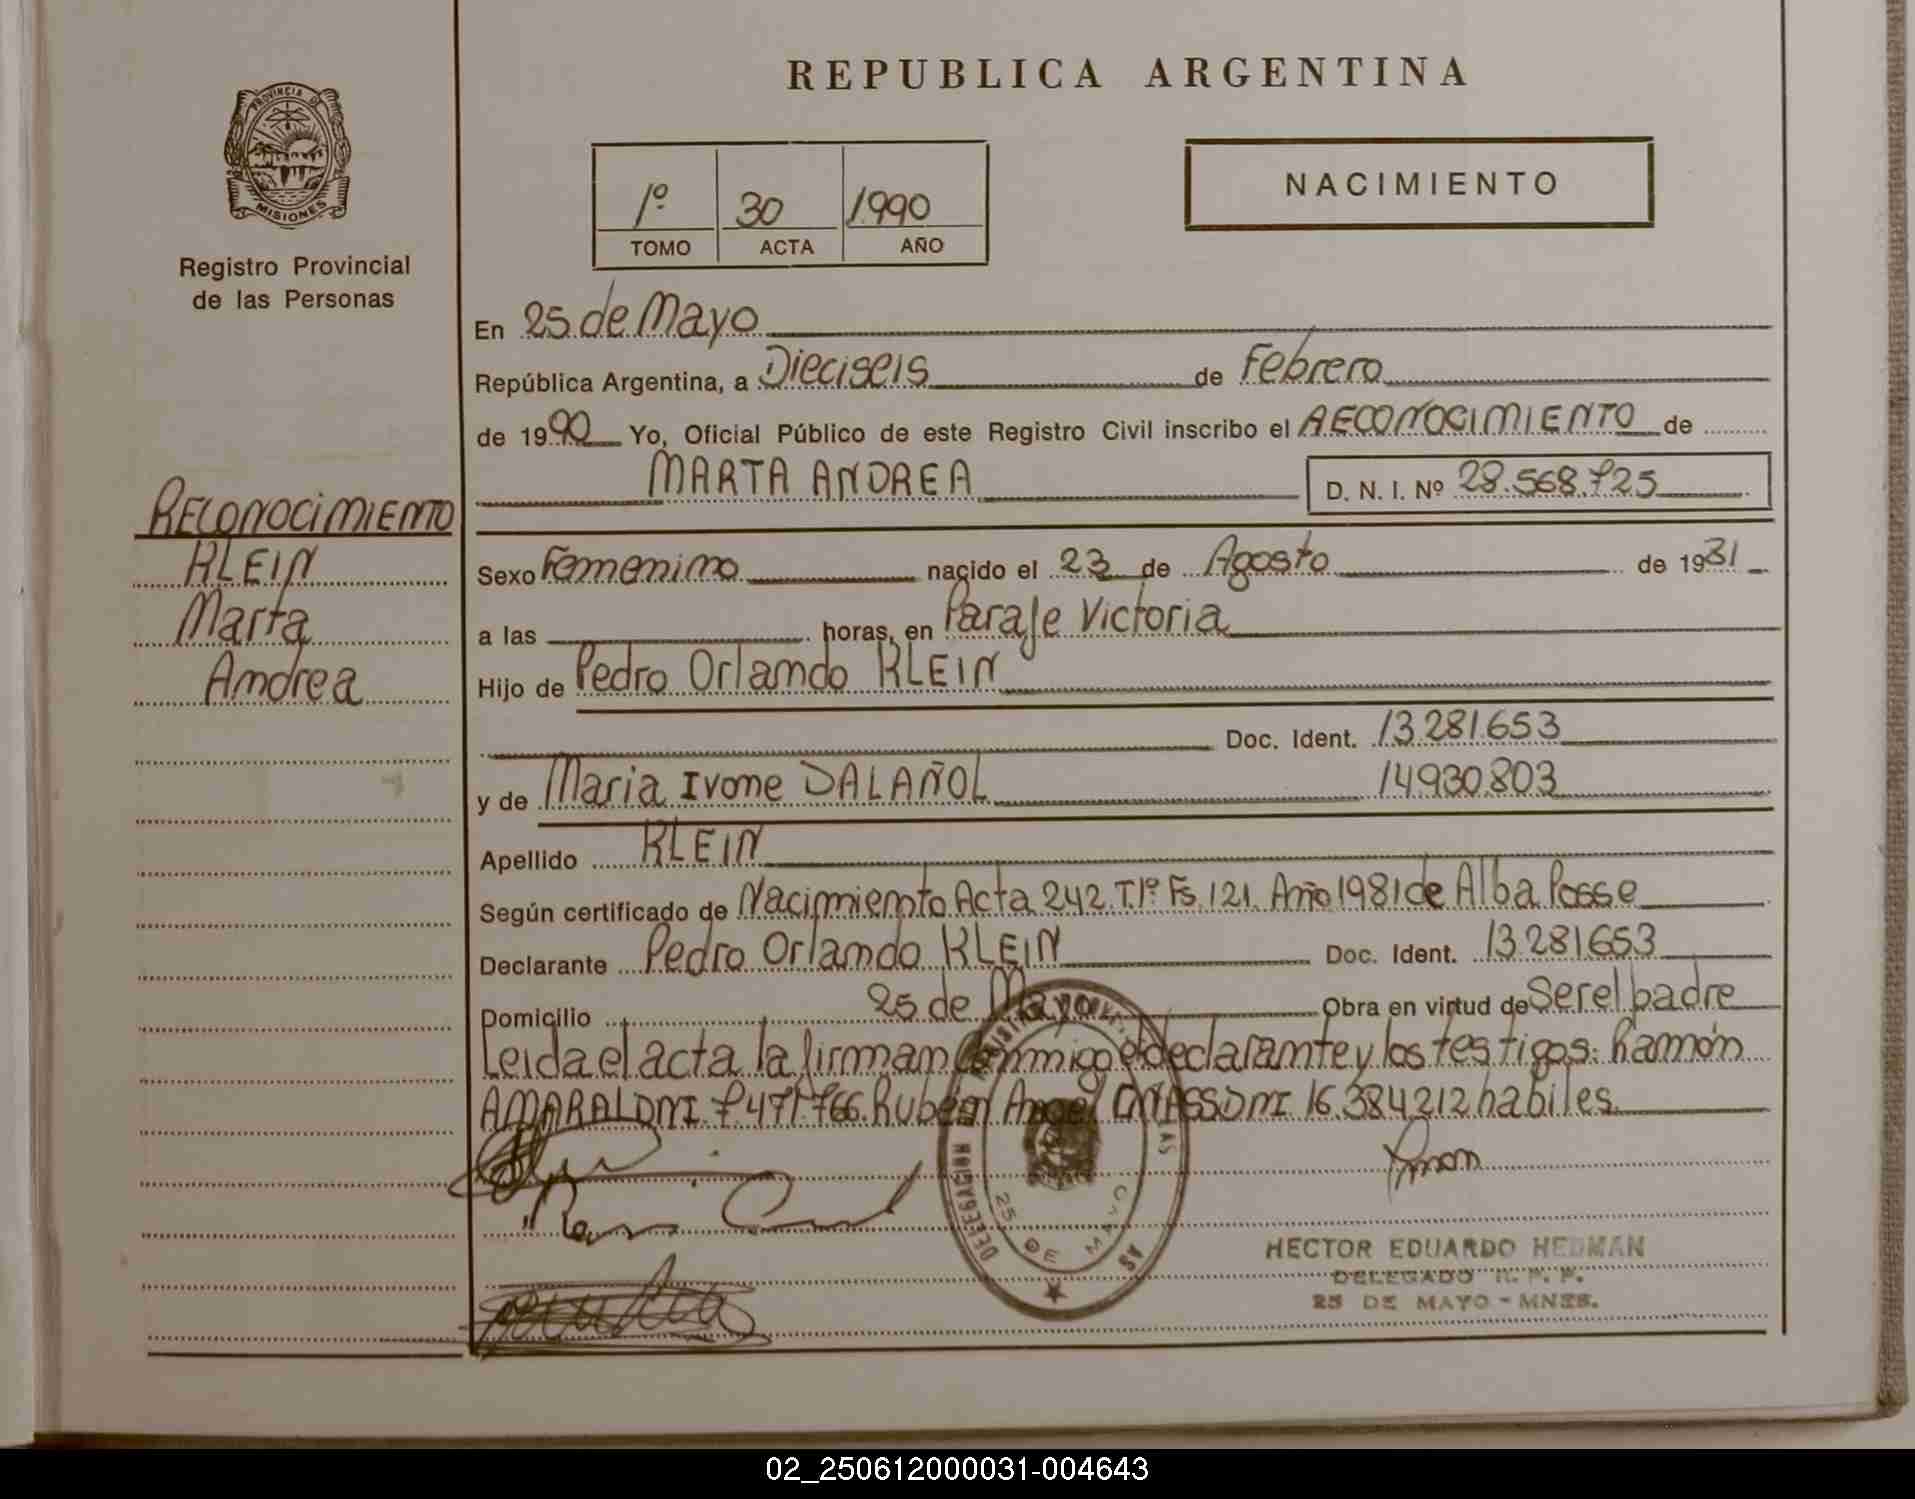 PROVINCIA DE
MISIONES
Registro Provincial
de las Personas
RECONOCIMIENTO
KLEIN
Marta
Andrea
REPUBLICA ARGENTINA
1º 30 1990
TOMO ACTA AÑO
NACIMIENTO
En 25 de Mayo
República Argentina, a Dieciseis de Febrero
de 1990 Yo, Oficial Público de este Registro Civil inscribo el RECONOCIMIENTO de
MARTA ANDREA D. N. I. Nº 28.568.725
Sexo Femenino nacido el 23 de Agosto de 1981
a las horas, en Paraje Victoria
Hijo de Pedro Orlando KLEIN
Doc. Ident. 13.281.653
y de Maria Ivone DALAÑOL 14.930.803
Apellido KLEIN
Según certificado de Nacimiento Acta 242. T.1º Fs. 121. Año 1981 de Alba Posse
Declarante Pedro Orlando KLEIN Doc. Ident. 13.281653
Domicilio 25 de Mayo Obra en virtud de Ser el padre
Leida el acta la firman Conmigo el declarante y los testigos: Ramón
AMARAL DNI. 7.471.766. Rubén Angel DNI 16.384212 habiles.
25 DE MAYO
HECTOR EDUARDO HEDMAN
DELEGADO R. P. P.
25 DE MAYO - MNES.
02_250612000031-004643